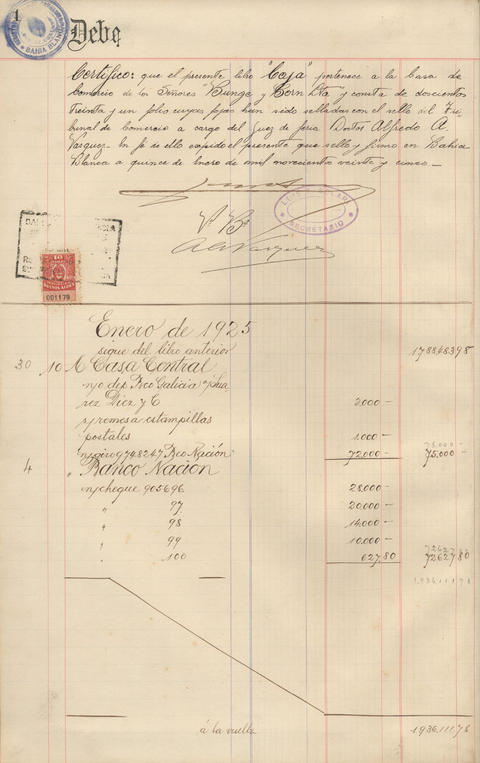 1
BAHIA BLANCA
Debe
Certifico: que el presente libro "Caja" pertenece a la casa de
Comercio de los Señores "Bunge y Born Lta y consta de doscientos
Treinta y un folios cuyas fojas han sido selladas con el sello del Tri-
bunal de Comercio a cargo del Juez de feria Doctor Alfredo A.
Vazquez. En fe de ello expido el presente que sello y firmo en Bahia
Blanca a quince de Enero de mil novecientos veinte y cinco.—
SECRETARIO
Vº Bº
A A Vazquez
10
001179
Enero de 1925
sigue del libro anterior 178848398
30 10 A Casa Central
n/o dep Bco Galicia o/p Sua
rez Diez y C 2.000 —
s/remesa estampillas
postales 1.000 —
n/giro 9748247 Bco Nación 72.000 — 75.000 —
4 " Banco Nación
n/cheque 905696 28.000 —
" 97 20.000 —
" 98 14.000 —
" 99 10.000 —
" 100 627.80 72627.80
193611178
á la vuelta 193611178